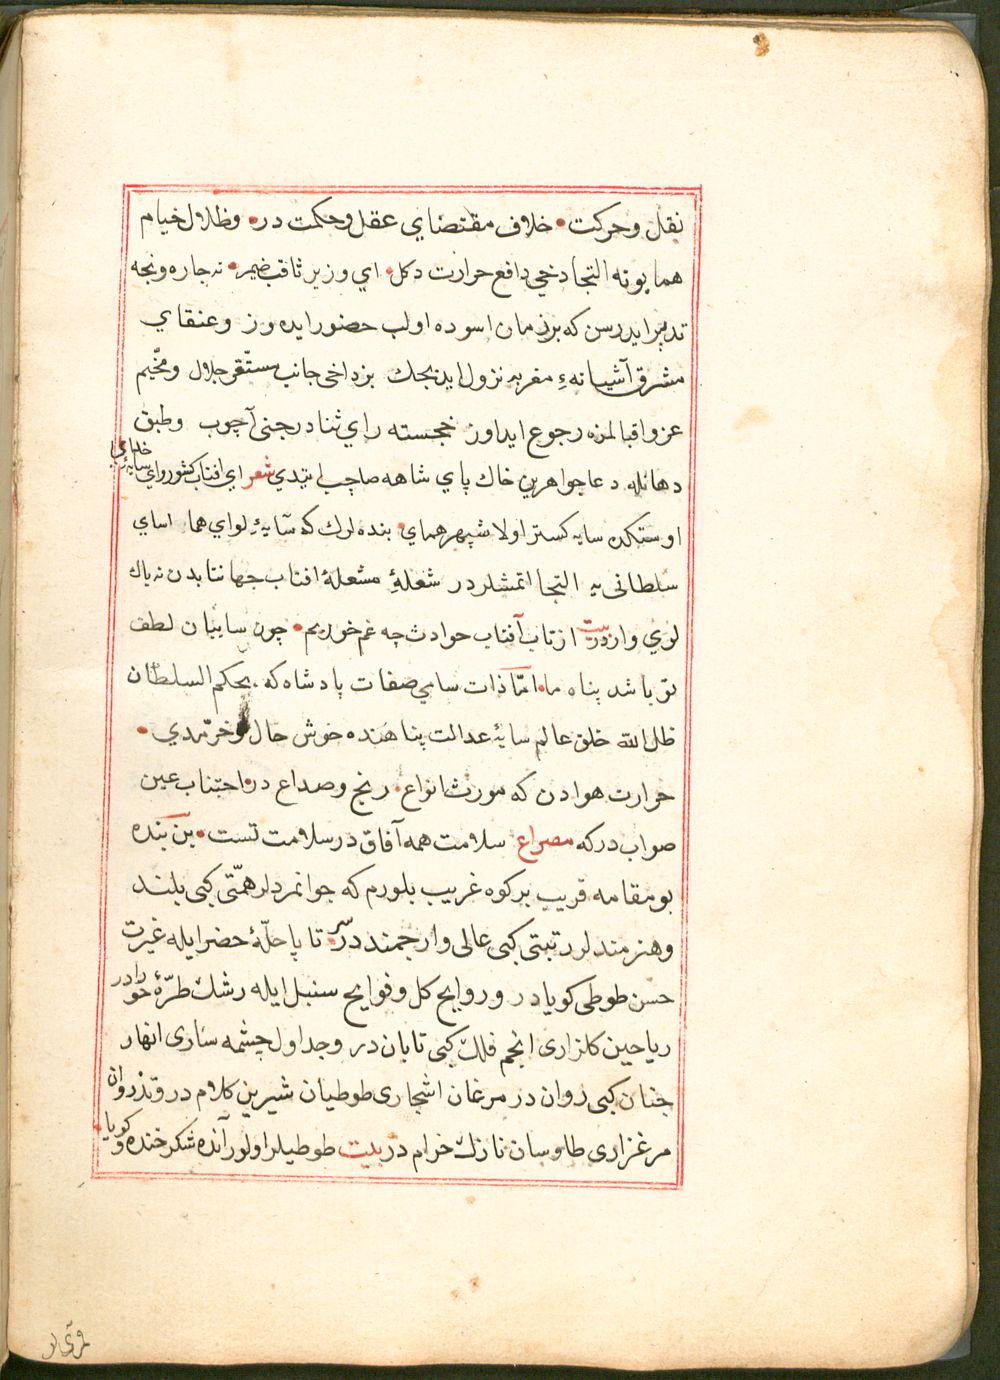 نقل و حرکت • خلاف مقتضاي عقل و حکمت در • و ظلال خيام
همايونه التجا دخي دافع حرارت دکل • اي وزير ثاقب ضمير • نه چاره و نجه
تدبير ايدرسن که بر زمان اسوده اولب حضور ايده وز و عنقاي
مشرق آشيانهٔ مغربه نزول ايديجك بز داخي جانب مستقر جلال و مخيّم
عز و اقبالمزه رجوع ايداوز خجسته راي ثنا درجنی آچوب و طبق
دهانله دعا جواهرين خاك پاي شاهه صاچب ايتدي شعر اي افتاب کشور واي سايهٔ خداي
اوستکده سايه کستر اولا شهپر هماي • بنده لرك که سآيۀ لواي هما اساي
سلطانی يه التجا اتمشلردر شعلۀ مشعلۀ افتاب جهانتابدن نه باك
لري واردر بيت از تاب آفتاب حوادث چه غم خوريم • چون سايبان لطف
تو باشد پناه ما • امّا ذات سامي صفات پادشاه که بحکم السلطان
ظل الله خلق عالم سايۀ عدالت پناهنده خوش حال و خرّمدي •
حرارت هوادن که مورث انواع • رنج و صداع در • اجتناب عين
صواب درکه مصراع سلامت همه آفاق در سلامت تست • بن بنده
بو مقامه قريب بر کوه غريب بلورم که جوانمردلر همّتی کبی بلند
و هنرمندلر رتبتی کبی عالی و ارجمند در • سر تا پا حلّۀ حضرا يله غيرت
حسن طوطی کويا در و روايح کل و فوايح سنبل ايله رشك طرّۀ حورا در
رياحين کلزاری انجم فلك کبی تابان در و جداول چشمه ساری انهار
جنان کبی روان در مرغان اشجاری طوطيان شيرين کلام در و تذروان
مرغزاری طاوسان نازك خرام در بيت طوطيلر اولور آنده شکر خنده و کويا •